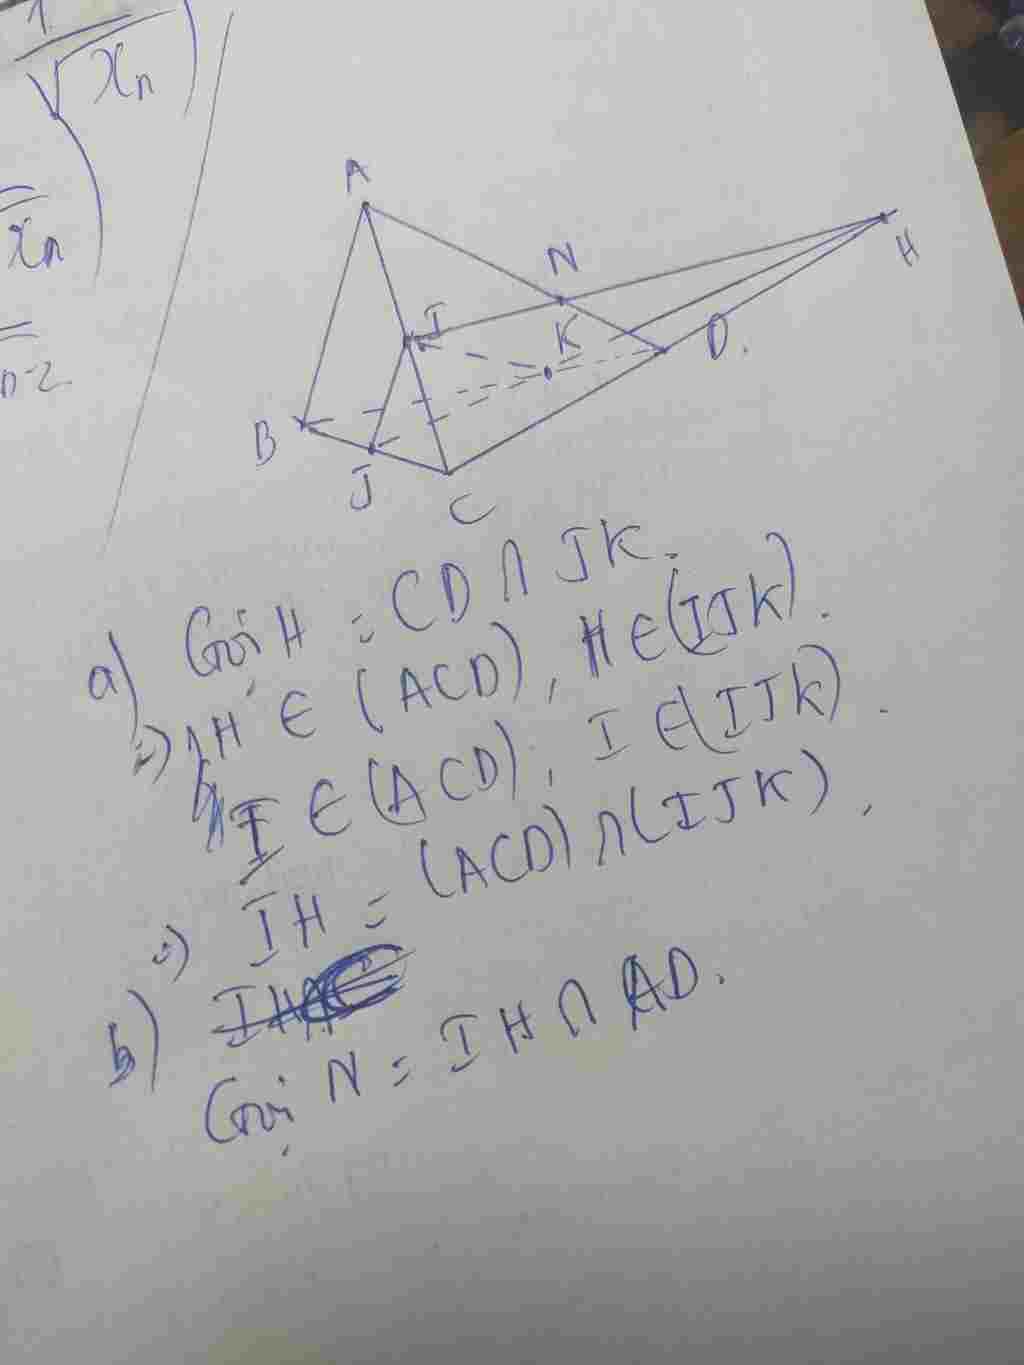 1
√xn)
xn)
n-2
A
N
H
I
K
D.
B
J
C
a) Gọi H = CD ∩ JK.
=) H ∈ (ACD), H ∈ (IJK).
I ∈ (ACD), I ∈ (IJK).
=) IH = (ACD) ∩ (IJK).
b)
Gọi N = IH ∩ AD.